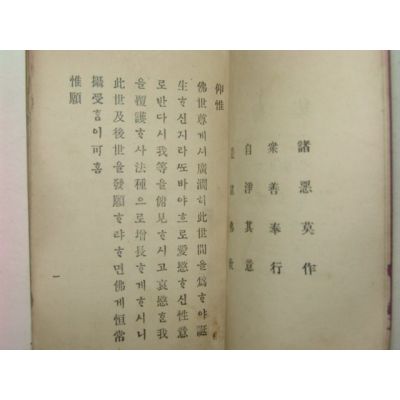 諸惡莫作
衆善奉行
自淨其意
仰惟
佛世尊게서廣濶히此世間을爲ᄒᆞ야誕
生ᄒᆞ신지라ᄯᅩ바야흐로愛愍ᄒᆞ신性意
로반다시我等을俯見ᄒᆞ시고哀愍ᄒᆞ我
을覆護ᄒᆞ사法種으로增長ᄒᆞ게ᄒᆞ시니
此世及後世을發願ᄒᆞ랴ᄒᆞ면佛게恒常
攝受홈이可홈
惟願
一